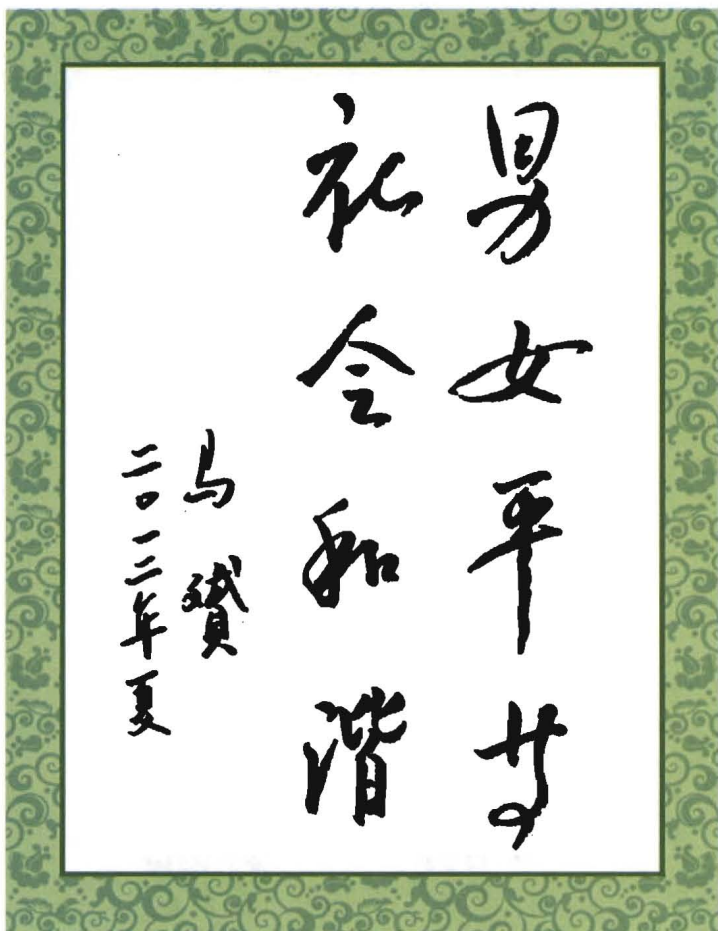 男女平等
社会和谐
马贇
二〇一三年夏